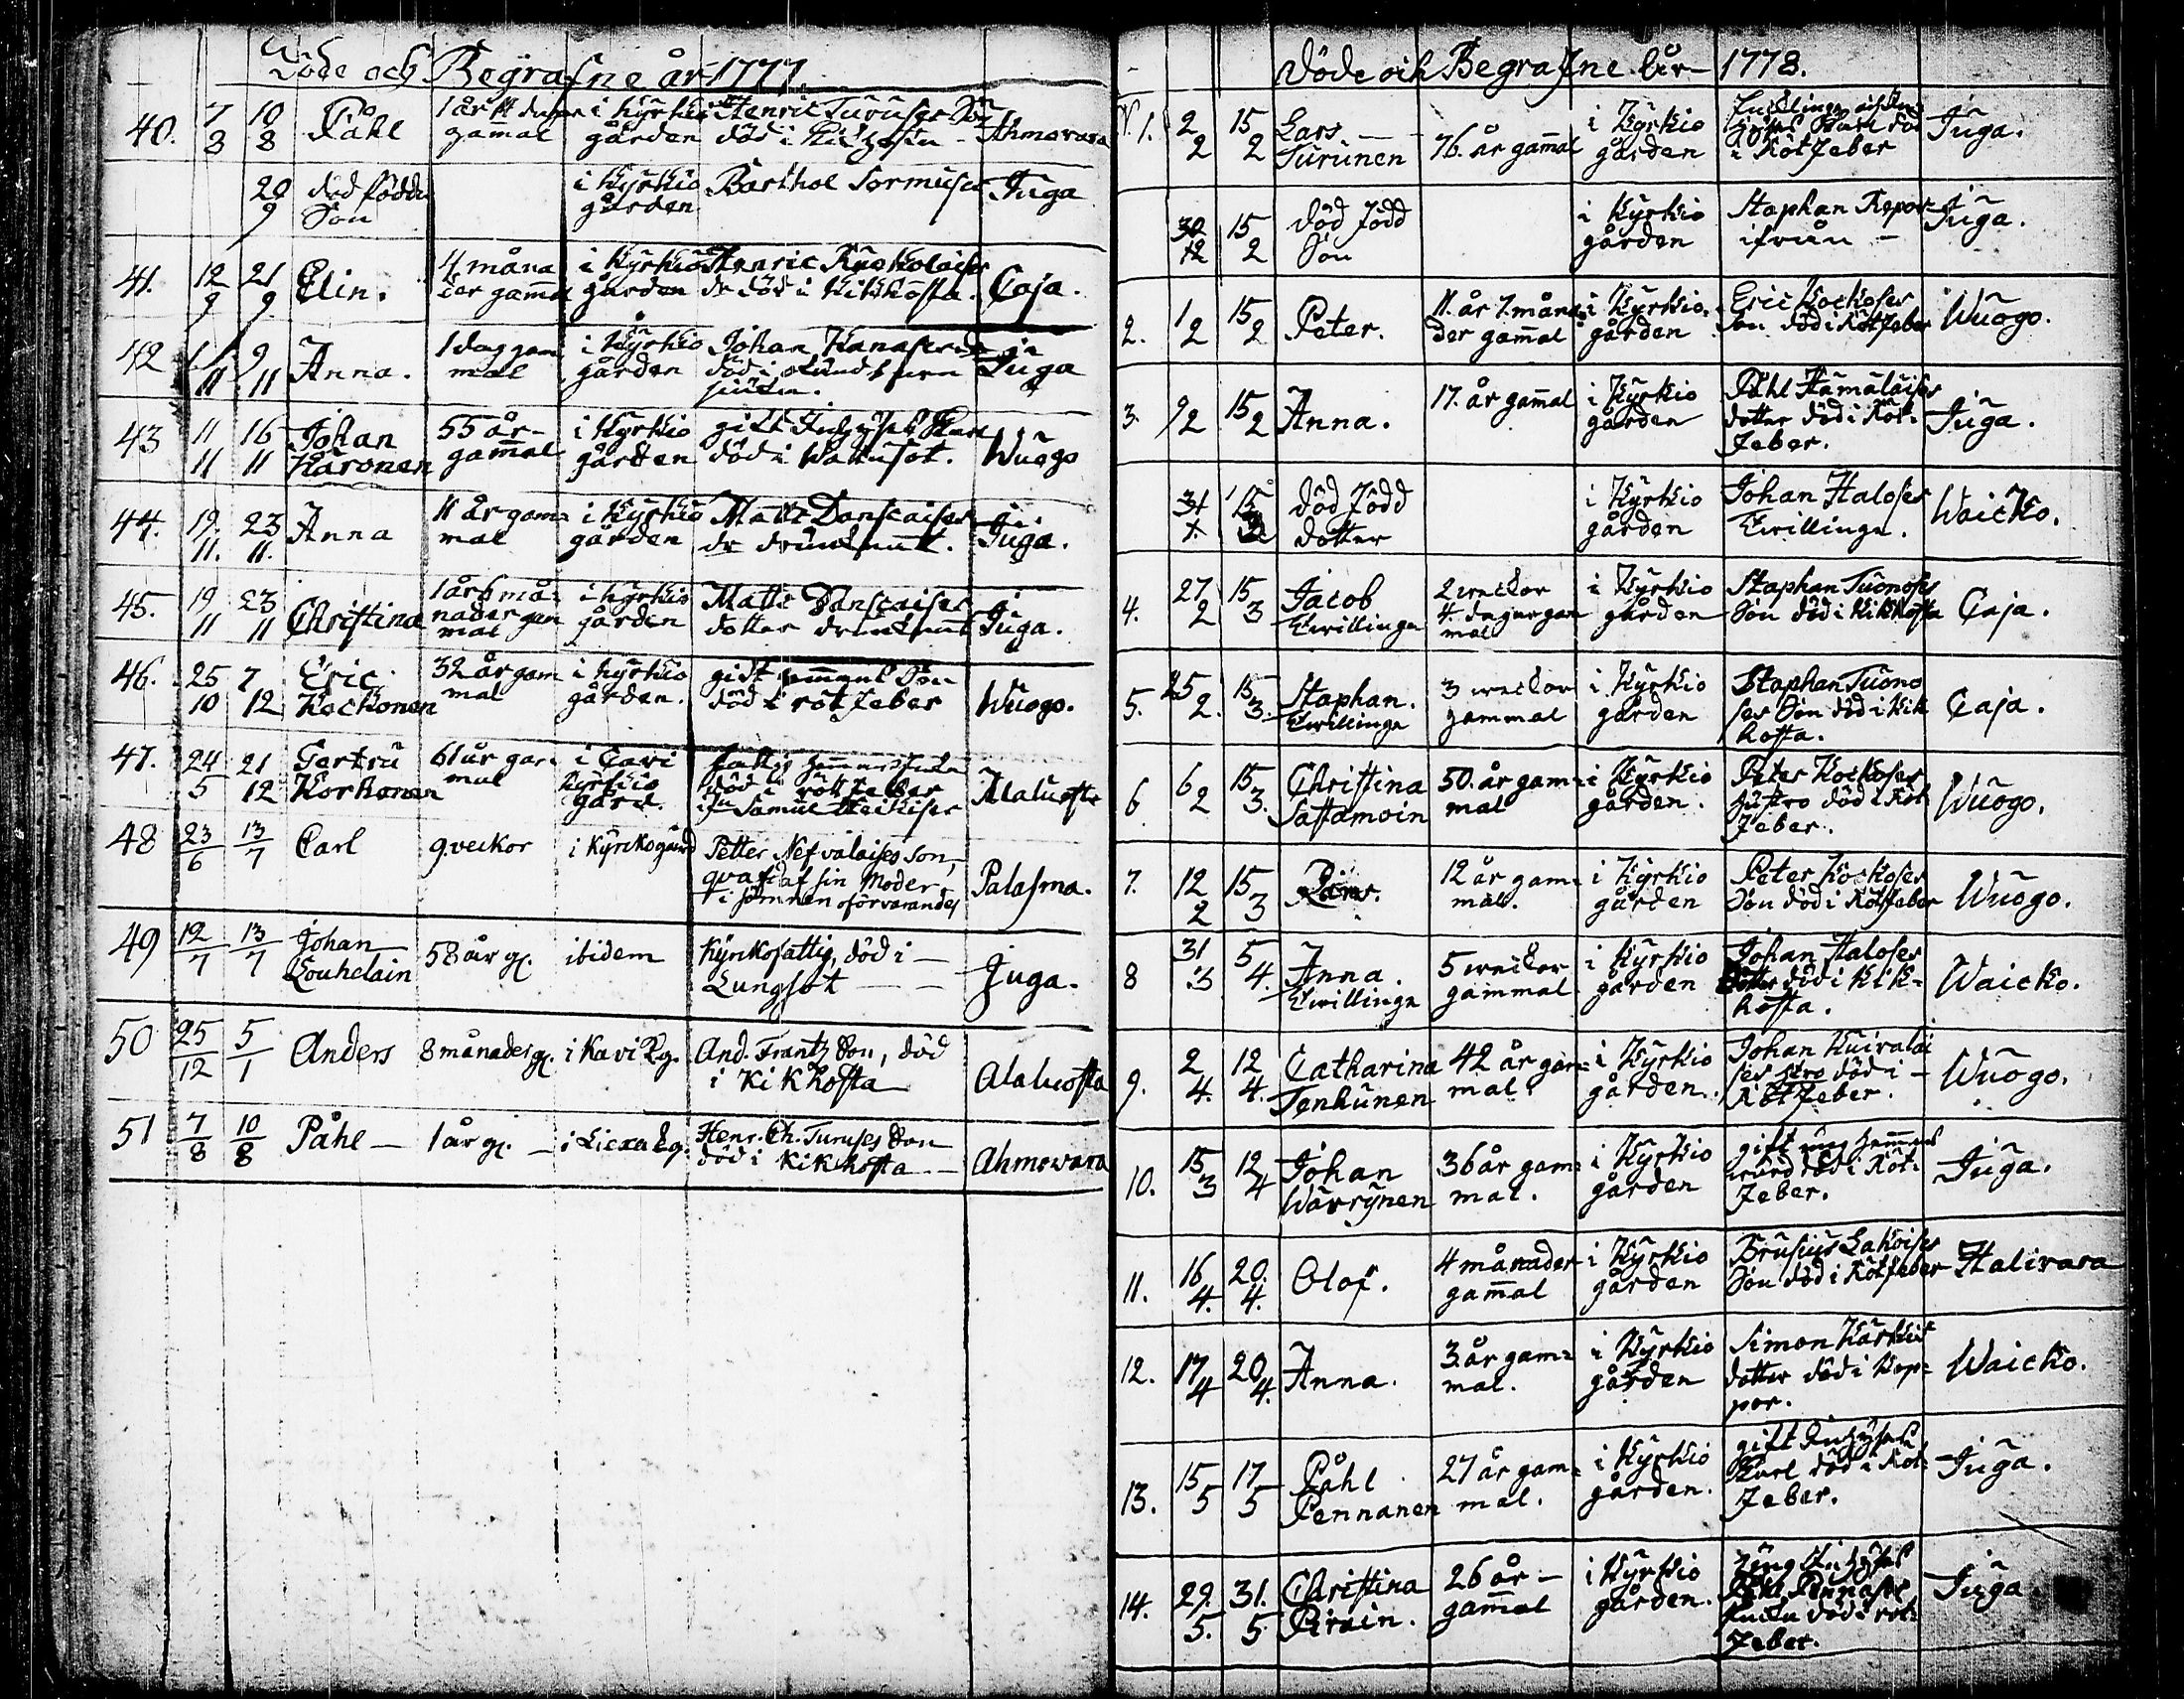 Döde och Begrafne år 1777.
40. 7/8 10/8 Påhl 1 år gamal i Kyrkio gården Henric Turuses Son död i Ahmovara
20/9 död födde Son i Kyrkio gården Barthol Sormuses Juga
41. 12/9 21/9 Elin. 4 månader gammal i Kyrkio gården Henric Ruokolaises dr död i Kikhosta. Caja.
42 1/11 9/11 Anna. 1 dag gammal i Kyrkio gården Johan Hanases dr död i Juga
43 11/11 16/11 Johan Karonen 55 år gammal i Kyrkio gården gift Karl död i Wattusot. Wuogo
44. 19/11. 23/11. Anna 11 år gammal i Kyrkio gården Matts Danscaises dr Juga.
45. 19/11 23/11 Christina 1 år 6 månader gammal i Kyrkio gården Matts Danscaises dotter Juga.
46. 25/10 7/12 Eric Kockonen 32 år gammal i Kyrkio gården. gift Son död i rötfeber Wuogo.
47. 24/5 21/12 Gertru Korhonen 61 år gammal i Cavi Kyrkio gård. död i rötfeber ifrån Samuel Heickises Alaluosta
48 23/6 13/7 Carl 9. veckor i Kyrckogård Petter Nefvalaises son, qvafd af sin Moder, i sömnen oförvarandes Palasma.
49 12/7 13/7 Johan Louhelain 58 år gl. ibidem Kyrkofattig, död i Lungsot Juga.
50 25/12 5/1 Anders 8 månader gl. i Kavi Kg. And. Frantz Son, död i Kikhosta Alaluosta
51 7/8 10/8 Påhl 1 år gl. i Liexa kg. Henr. Ch. Turuses Son död i Kikhosta Ahmovara
Döde och Begrafne år 1778.
N. 1. 2/2 15/2 Lars Turunen 76. år gammal i Kyrkio gården Karl död i Rötfeber Juga.
30/12 15/2 död född Son i Kyrkio gården Staphan Repos ifrån Juga.
2. 1/2 15/2 Peter. 11. år 7. månader gammal i Kyrkio gården Eric Kockoses Son död i Rötfeber Wuogo.
3. 9/2 15/2 Anna. 17. år gammal i Kyrkio gården Påhl Hämäläises dotter död i Rötfeber. Juga.
31/1. 15/3 död född dotter i Kyrkio gården Johan Haloses Twillinge. Waicko.
4. 27/2 15/3 Jacob Twillinge 2 weckor 4. dagar gammal i Kyrkio gården Staphan Tuonoses Son död i Kikhosta Caja.
5. 25/2. 15/3. Staphan. Twillinge 3 weckor gammal i Kyrkio gården Staphan Tuonoses Son död i Kikhosta. Caja.
6 6/2 15/3. Christina Sattamoin 50. år gammal i Kyrkio gården. Peter Kockoses hustro död i Rötfeber. Wuogo.
7. 12/2 15/3 Lars. 12 år gammal. i Kyrkio gården Peter Kockoses Son död i Rötfeber Wuogo.
8 31/3 5/4. Anna. Twillinge 5 weckor gammal i Kyrkio gården Johan Haloses dotter död i Kikhosta. Waicko.
9. 2/4. 12/4. Catharina Tenhunen 42 år gammal. i Kyrkio gården. Johan Kuivalaises stro död i Rötfeber. Wuogo.
10. 15/3 12/4 Johan Wärrynen 36 år gammal. i Kyrkio gården gift ung död i Rötfeber. Juga.
11. 16/4. 20./4. Olof. 4 månader gammal i Kyrkio gården Brusius Lakoises Son död i Rötfeber Halivara
12. 17/4 20/4. Anna. 3. år gammal. i Kyrkio gården Simon Kärkis dotter död i Koppor. Waicko.
13. 15/5 17/5 Påhl Pennanen 27 år gammal. i Kyrkio gården. gift Karl död i Rötfeber. Juga.
14. 29./5. 31./5 Christina Pirain. 26 år gammal i Kyrkio gården. Påhl Pennases Encka död i rötfeber. Juga